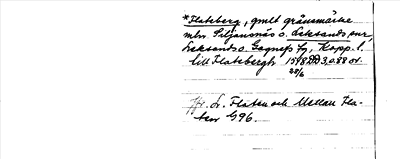 *Flateberg, gmlt gränsmärke
mln Siljansnäs o. Leksands snr,
Leksands o. Gagnefs tg, Kopp. l.
till Flatebergh 1548 3.0.88 or.
Jfr Lr. Flaten och Mellan Fla-
ten G96.